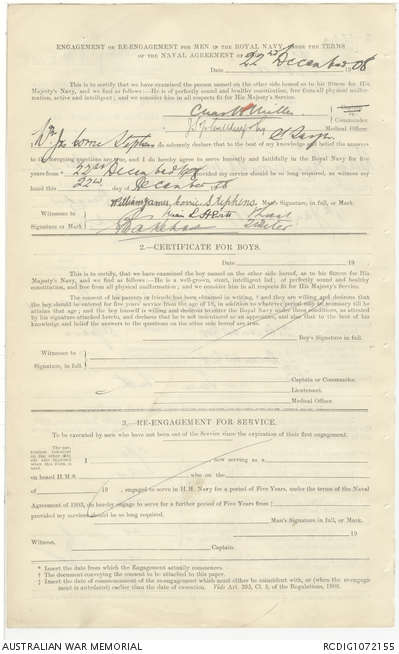 ENGAGEMENT or RE-ENGAGEMENT for MEN IN THE ROYAL NAVY, UNDER THE TERMS
OF THE NAVAL AGREEMENT OF
Date 22nd December 1908
This is to certify that we have examined the person named on the other side hereof as to his fitness for His
Majesty's Navy, and we find as follows:—He is of perfectly sound and healthy constitution, free from all physical malformation,
active and intelligent; and we consider him in all respects fit for His Majesty's Service.
Commander.
Medical Officer.
Stephens do solemnly declare that to the best of my knowledge and belief the answers
to the foregoing questions are true, and I do hereby agree to serve honestly and faithfully in the Royal Navy for five
years from 22nd December 1908 provided my service should be so long required, as witness my
hand this 22nd day of December 08
William James Stephens Man's Signature, in full, or Mark.
Witnesses to
Signature or Mark
2.—CERTIFICATE FOR BOYS.
Date 19
This is to certify, that we have examined the boy named on the other side hereof, as to his fitness for His
Majesty's Navy, and we find as follows:—He is a well-grown, stout, intelligent lad; of perfectly sound and healthy
constitution, and free from all physical malformation; and we consider him in all respects fit for His Majesty's Service.
The consent of his parents or friends has been obtained in writing, † and they are willing and desirous that
the boy should be entered for five years' service from the age of 18, in addition to whatever period may be necessary till he
attains that age; and the boy himself is willing and desirous to enter the Royal Navy under these conditions, as attested
by his signature attached hereto, and declares that he is not indentured as an apprentice, and also that to the best of his
knowledge and belief the answers to the questions on the other side hereof are true.
Boy's Signature in full.
Witnesses to
Signature, in full.
Captain or Commander.
Lieutenant.
Medical Officer.
3.—RE-ENGAGEMENT FOR SERVICE.
To be executed by men who have not been out of the Service since the expiration of their first engagement.
I now serving as a
on board H.M.S. who on the
of 19 , engaged to serve in H.M. Navy for a period of Five Years, under the terms of the Naval
Agreement of 1903, do hereby engage to serve for a further period of Five Years from ‡
provided my services should be so long required.
Man's Signature in full, or Mark.
19
Witness,
Captain.
* Insert the date from which the Engagement actually commences.
† The document conveying the consent to be attached to this paper.
‡ Insert the date of commencement of the re-engagement which must either be coincident with, or (when the re-engagement
is antedated) earlier than the date of execution. Vide Art. 393, Cl. 8, of the Regulations, 1908.
AUSTRALIAN WAR MEMORIAL
RCDIG1072155